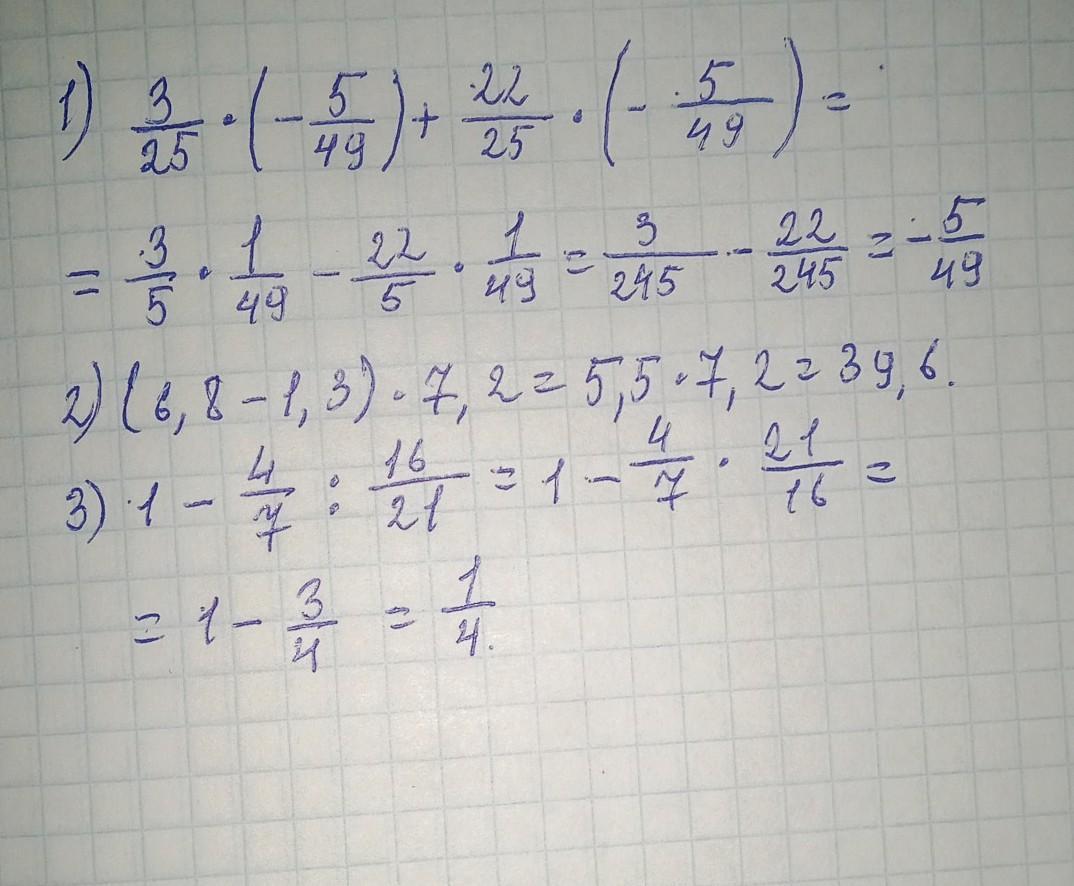 1) 3/25 · (- 5/49) + 22/25 · (- 5/49) =
= 3/5 · 1/49 - 22/5 · 1/49 = 3/245 - 22/245 = - 5/49
2) (6,8 - 1,3) · 7,2 = 5,5 · 7,2 = 39,6.
3) 1 - 4/7 : 16/21 = 1 - 4/7 · 21/16 =
= 1 - 3/4 = 1/4.